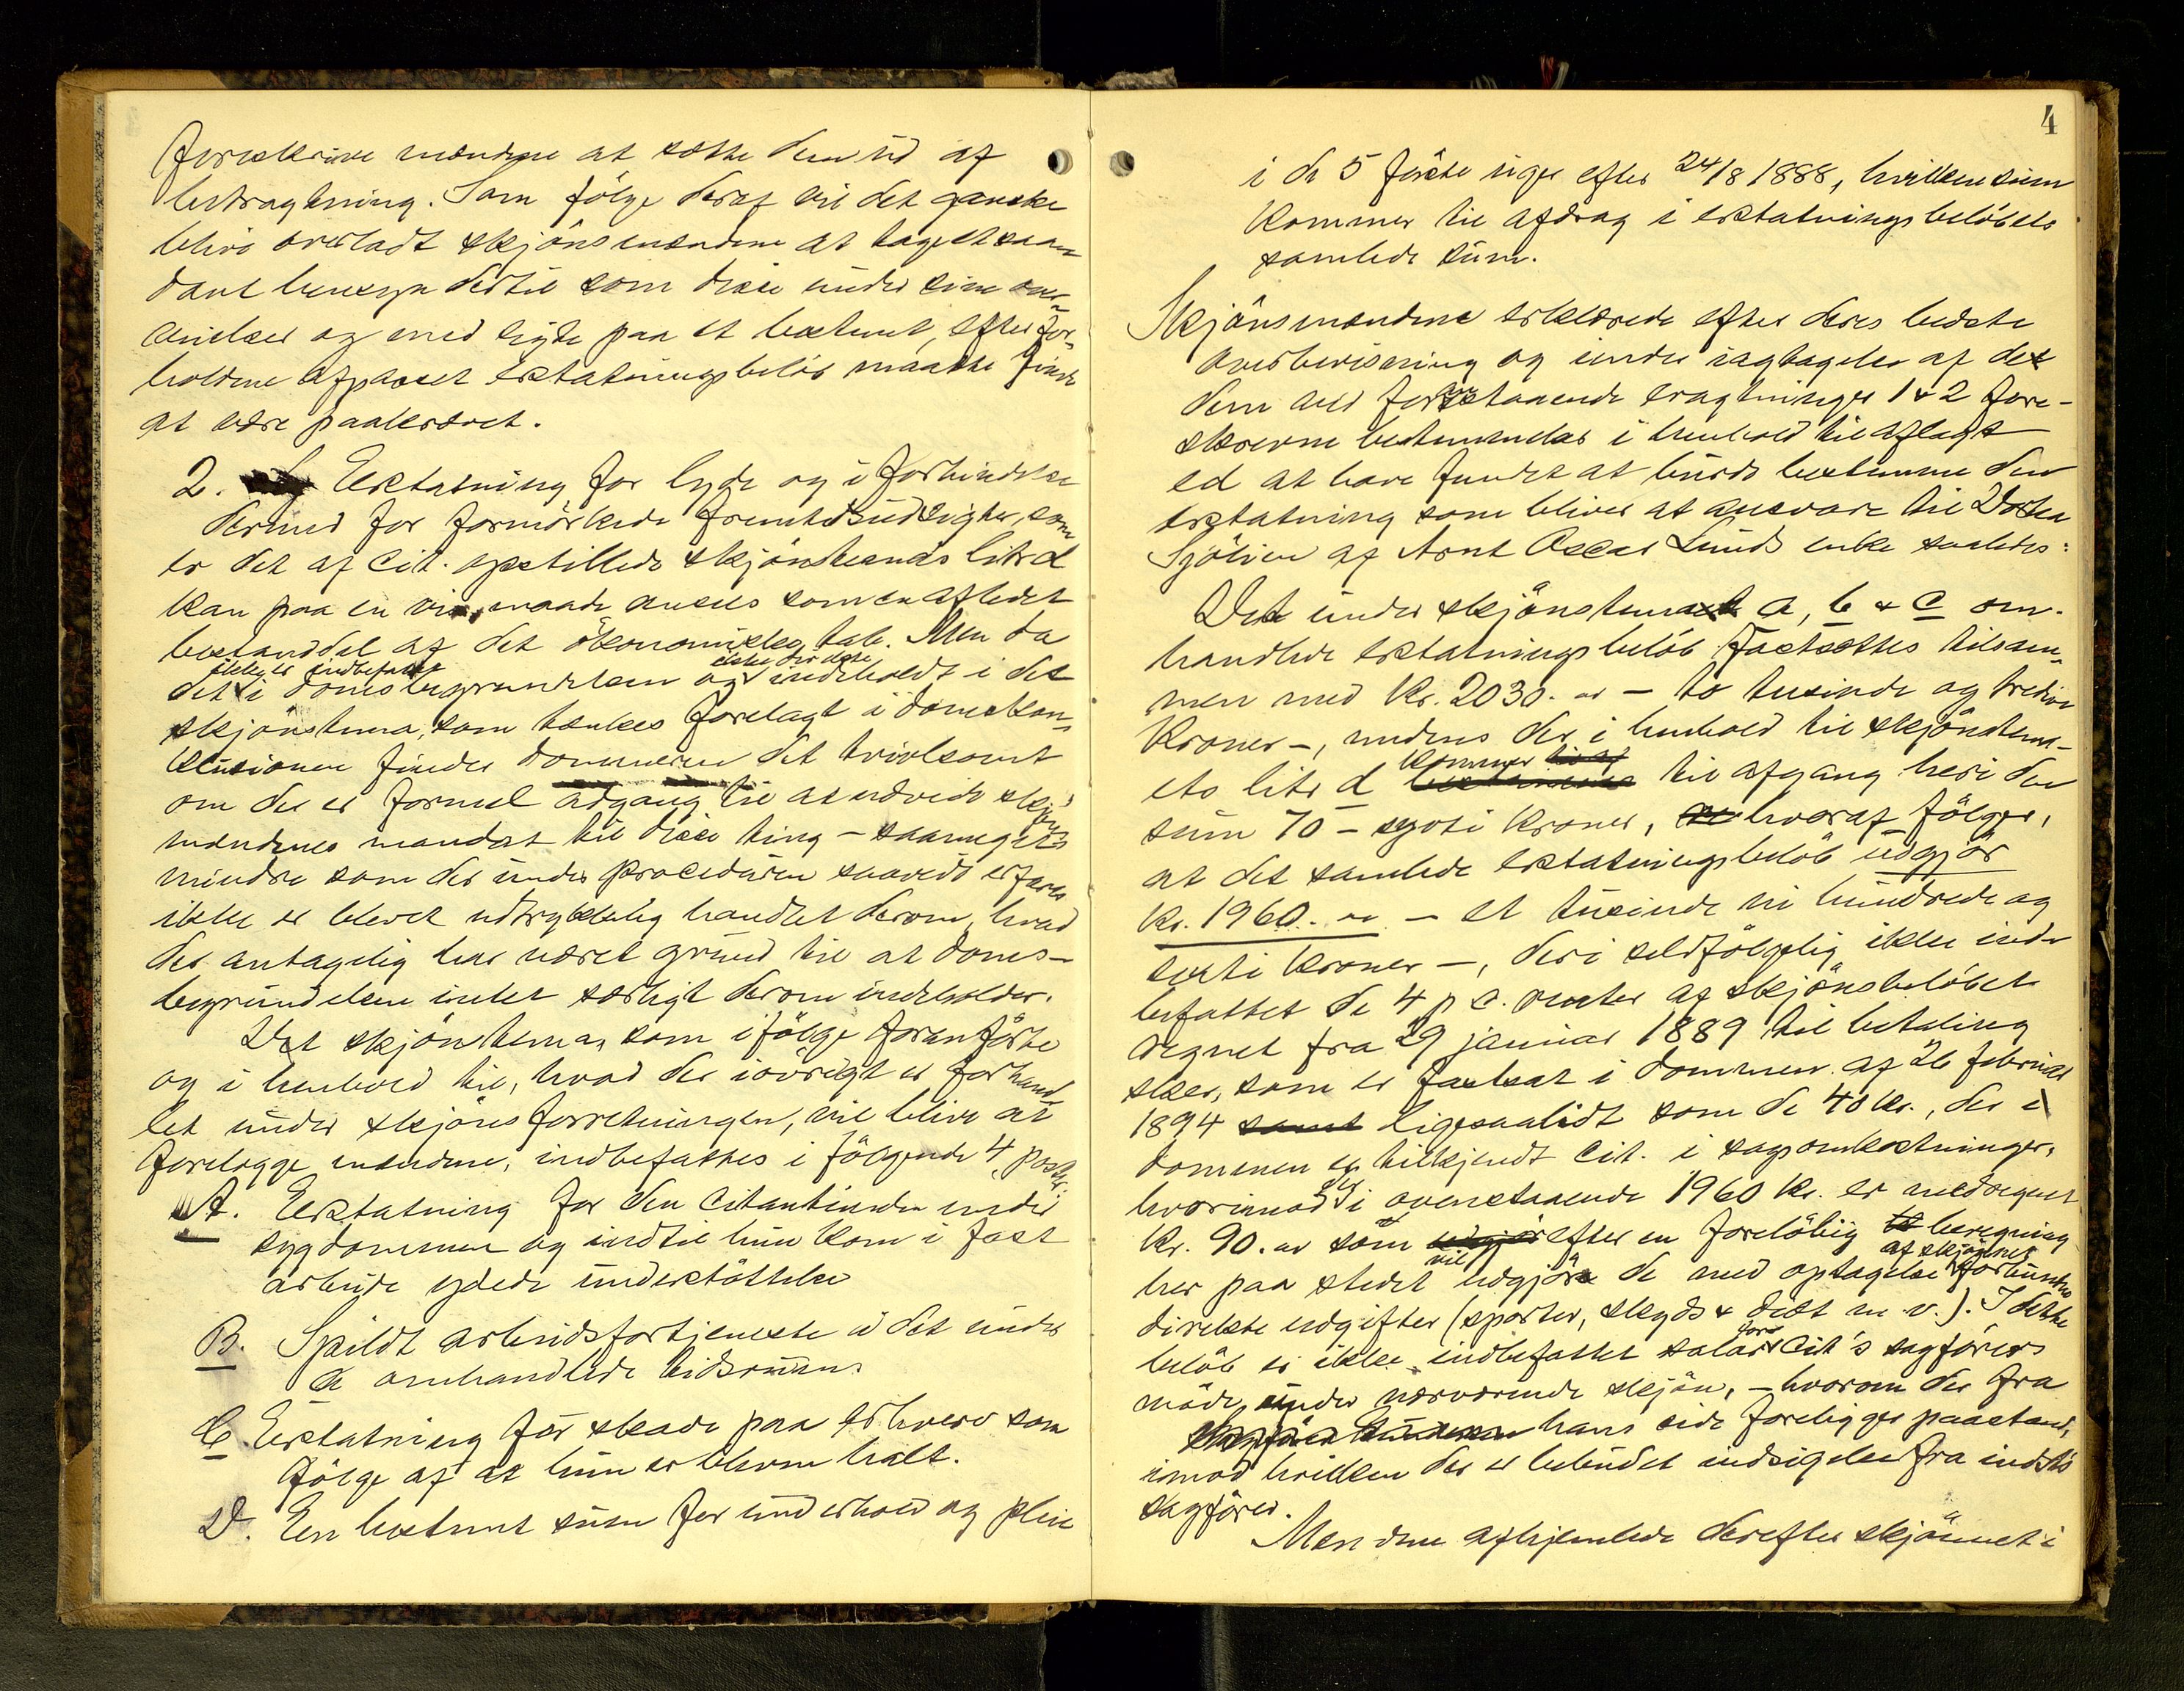 foreskrive mændene at sætte dem ud af
betragtning. Som fölge deraf vil det ganske
blive overladt skjönsmændene at tage et saa-
dant hensyn dertil som disse under sine over-
veielser og med sigte paa et bestemt, efter for-
holdene afpasset erstatningsbelöb maatte finde
at være paakrævet.
2. Erstatning for lyde og i forbindelse
dermed for formörkede fremtidsudsigter, som
er det af cit. opstillede skjönstemas litr d
kan paa en vis maade ansees som en afledet
bestanddel af det ökonomiske tab. Men da
det ikke er indbefattet i domsbegrundelsen og ikke heller indeholdt i det
skjönstema, som tænkes forelagt i domskon-
klusionen finder dommeren det tvivlsomt
om der er formel adgang til at udvide skjöns-
mændenes mandat til disse ting – saameget
mindre som der under proceduren saavidt erfares
ikke er blevet udtrykkelig handlet derom, hvad
der antagelig har været grund til at doms-
begrundelsen intet særligt derom indeholder.
Det skjönstema, som ifölge foranförte
og i henhold til, hvad der iövrigt er forhand-
let under skjönsforretningen, vil blive at
forelægge mændene, indbefattes i fölgende 4 poster:
A. Erstatning for den citantinden under
sygdommen og indtil hun kom i fast
arbeide ydede understöttelse
B. Spildt arbeidsfortjeneste i det under
a omhandlede tidsrum.
C. Erstatning for skade paa erhverv som
fölge af at hun er bleven halt.
D. En bestemt sum for underhold og pleie
4
i de 5 förste uger efter 24/8 1888, hvilken sum
kommer til afdrag i erstatningsbelöbets
samlede sum.
Skjönsmændene erklærede efter deres bedste
overbevisning og under iagttagelse af det
dem ved foranstaaende eragtninger 1 & 2 fore-
skrevne bestemmelser i henhold til aflagt
ed at have fundet at burde bestemme den
erstatning som bliver at ansvare til
Sjölien af Arnt Oscar Lunds enke saaledes:
Det under skjönstema a, b & c om-
handlede erstatningsbelöb fastsættes tilsam-
men med kr. 2030. – to tusinde og tredive
kroner –, medens der i henhold til skjönstema-
ets litr d kommer til afgang heri den
sum 70 – sytti kroner, hvoraf fölger,
at det samlede erstatningsbelöb udgjör
kr. 1960. – et tusinde ni hundrede og
sexti kroner –, deri selvfölgelig ikke ind-
befattet de 4 p c. renter af skjönsbelöbet
regnet fra 29 januar 1889 til betaling
sker, som er fastsat i dommen af 26 februar
1894 samt ligesaalidt som de 40 kr., der i
dommen er tilkjendt cit. i sagsomkostninger,
hvorimod der i ovenstaaende 1960 kr. er medregnet
kr. 90. som efter en forelöbig beregning
her paa stedet vil udgjöre de med optagelse af skjönnet forbundne
direkte udgifter (sporter, skyds & diæt m. v.). I dette
belöb er ikke indbefattet salær for cit's sagförers
möde under nærværende skjön, – hvorom der fra
hans side foreligger paastand,
imod hvilken der er bebudet indsigelse fra indst's
sagförer.
Mændene afhjemlede derefter skjönnet i